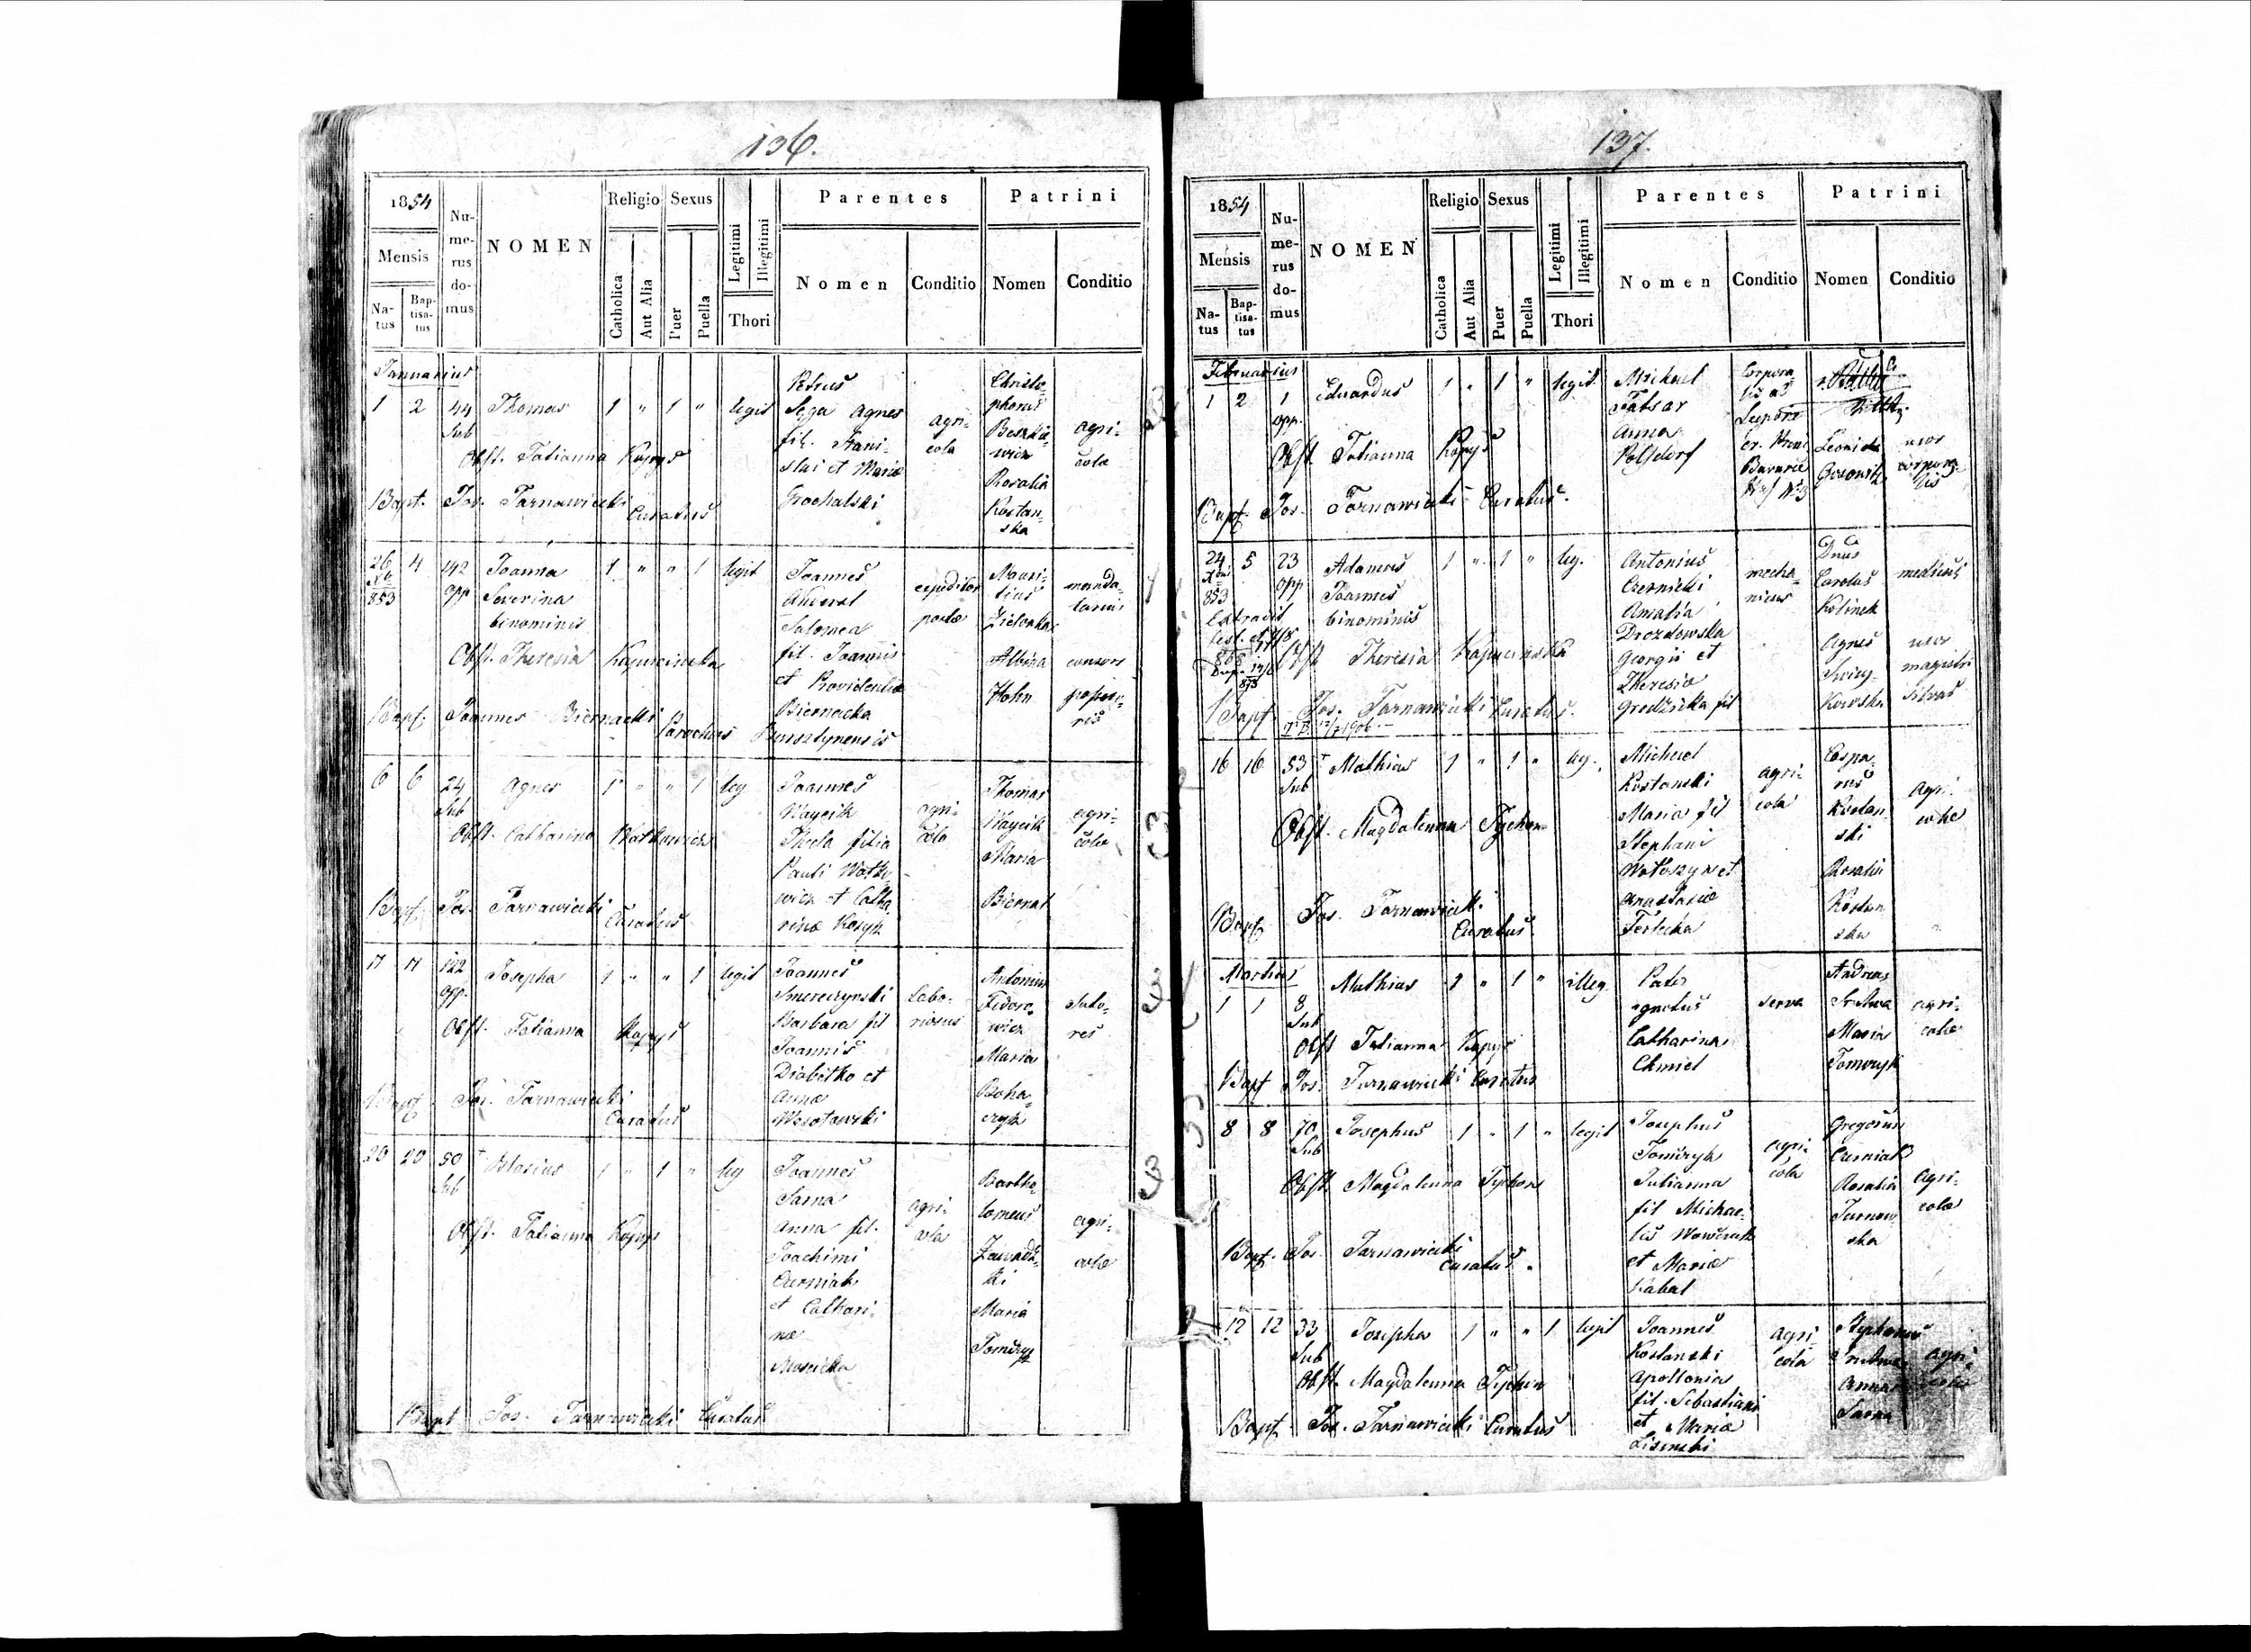 136.
1854
Mensis
Na-
tus
Bap-
tisa-
tus
Nu-
me-
rus
do-
mus
NOMEN
Religio
Catholica
Aut Alia
Sexus
Puer
Puella
Legitimi
Illegitimi
Thori
Parentes
Nomen
Conditio
Patrini
Nomen
Conditio
Januarius
1 2 44 Thomas 1 " 1 " legit
Sub
Petrus
Sega Agnes
fil. Stani-
slai et Mariæ
Grochalski
agri-
cola
Christo-
phorus
Rosalia
Kostan-
ska
agri-
colæ
Obst. Tatianna Kopyś
Bapt. Jos. Tarnawiecki Curatus
26 4 142 Joanna 1 " " 1 legit
853 opp Severina
binominis
Joannes
Salomea
fil. Joannis
et Providentiæ
Biernacka
expeditor
postæ
Mauri-
tius
Zielonka
Albina
Hohn
manda-
tarius
consors
Obst. Theresia Kapuscinska
Bapt. Joannes Biernacki Parochus Bursztynensis
6 6 24 Agnes 1 " " 1 leg
Sub
Joannes
Waycik
Thecla filia
Pauli Watko-
wicz et Catha-
rinæ Kosyk
agri-
cola
Thomas
Waycik
Maria
Biernat
agri-
colæ
Obst. Catharina Watkowicz
Bapt. Jos. Tarnawiecki Curatus
17 17 122 Josepha 1 " " 1 legit
opp.
Joannes
Smereczynski
Barbara fil
Joannis
Diabełko et
Annæ
Wesołowski
Labo-
riosus
Antonius
Fedoro-
wicz
Maria
Boha-
czyk
Suto-
res
Obst. Tatianna Kopyś
Bapt Jos. Tarnawiecki Curatus
20 20 50 Blasius 1 " 1 " leg
Sub
Joannes
Sarna
Anna fil.
Joachimi
Curniak
et Cathari-
næ
Mościcka
agri-
cola
Bartho-
lomeus
Zawadz-
ki
Maria
agri-
colæ
Obst. Tatianna Kopyś
Bapt Jos. Tarnawiecki Curatus
137.
1854
Mensis
Na-
tus
Bap-
tisa-
tus
Nu-
me-
rus
do-
mus
NOMEN
Religio
Catholica
Aut Alia
Sexus
Puer
Puella
Legitimi
Illegitimi
Thori
Parentes
Nomen
Conditio
Patrini
Nomen
Conditio
Februarius
1 2 1 Eduardus 1 " 1 " legit.
opp.
Michael
Anna
Polsdorf
Corpora-
lis
Bavariæ
Leonida
uxor
corpora-
lis
Obst Tatianna Kopyś
Bapt Jos. Tarnawiecki Curatus.
24 5 23 Adamus 1 " 1 " leg.
853 opp Joannes
Extradit binominis
Antonius
Czernicki
Amalia
Drozdowska
Georgii et
Theresiæ
Grodzicka fil
mecha-
nicus
Dnus
Carolus
Kolinek
Agnes
medicus
uxor
magistri
Obst Theresia Kapuscinska
Bapt Jos. Tarnawiecki Curatus.
16 16 53 Mathias 1 " 1 " leg.
Sub
Michael
Kostanski
Maria fil
Stephani
Wołoszyn et
Anastasiæ
Terlecka
agri-
cola
Caspa-
rus
Kostan-
ski
Rosalia
Kostan
ska
agri-
colæ
Obst. Magdalenna Tychon
Bapt Jos. Tarnawiecki Curatus
Martius
1 1 8 Mathias 1 " 1 " illeg
Sub
Pater
ignotus
Catharina
Chmiel
serva
Andreas
Maria
agri-
colæ
Obst Tatianna Kopyś
Bapt Jos. Tarnawiecki Curatus
8 8 70 Josephus 1 " 1 " legit
Sub
Josephus
Julianna
fil Michae-
lis
et Mariæ
Kabal
agri-
cola
Gregorius
Curniak
Rosalia
Turnow-
ska
agri-
colæ
Obst. Magdalenna Tychon
Bapt. Jos. Tarnawiecki Curatus.
12 12 33 Josepha 1 " " 1 legit
Sub
Joannes
Kostanski
Apollonia
fil. Sebastiani
et Mariæ
Lisinski
agri-
cola
Stephanus
Anna
Sarna
agri-
colæ
Obst. Magdalenna Tychon
Bapt. Jos. Tarnawiecki Curatus